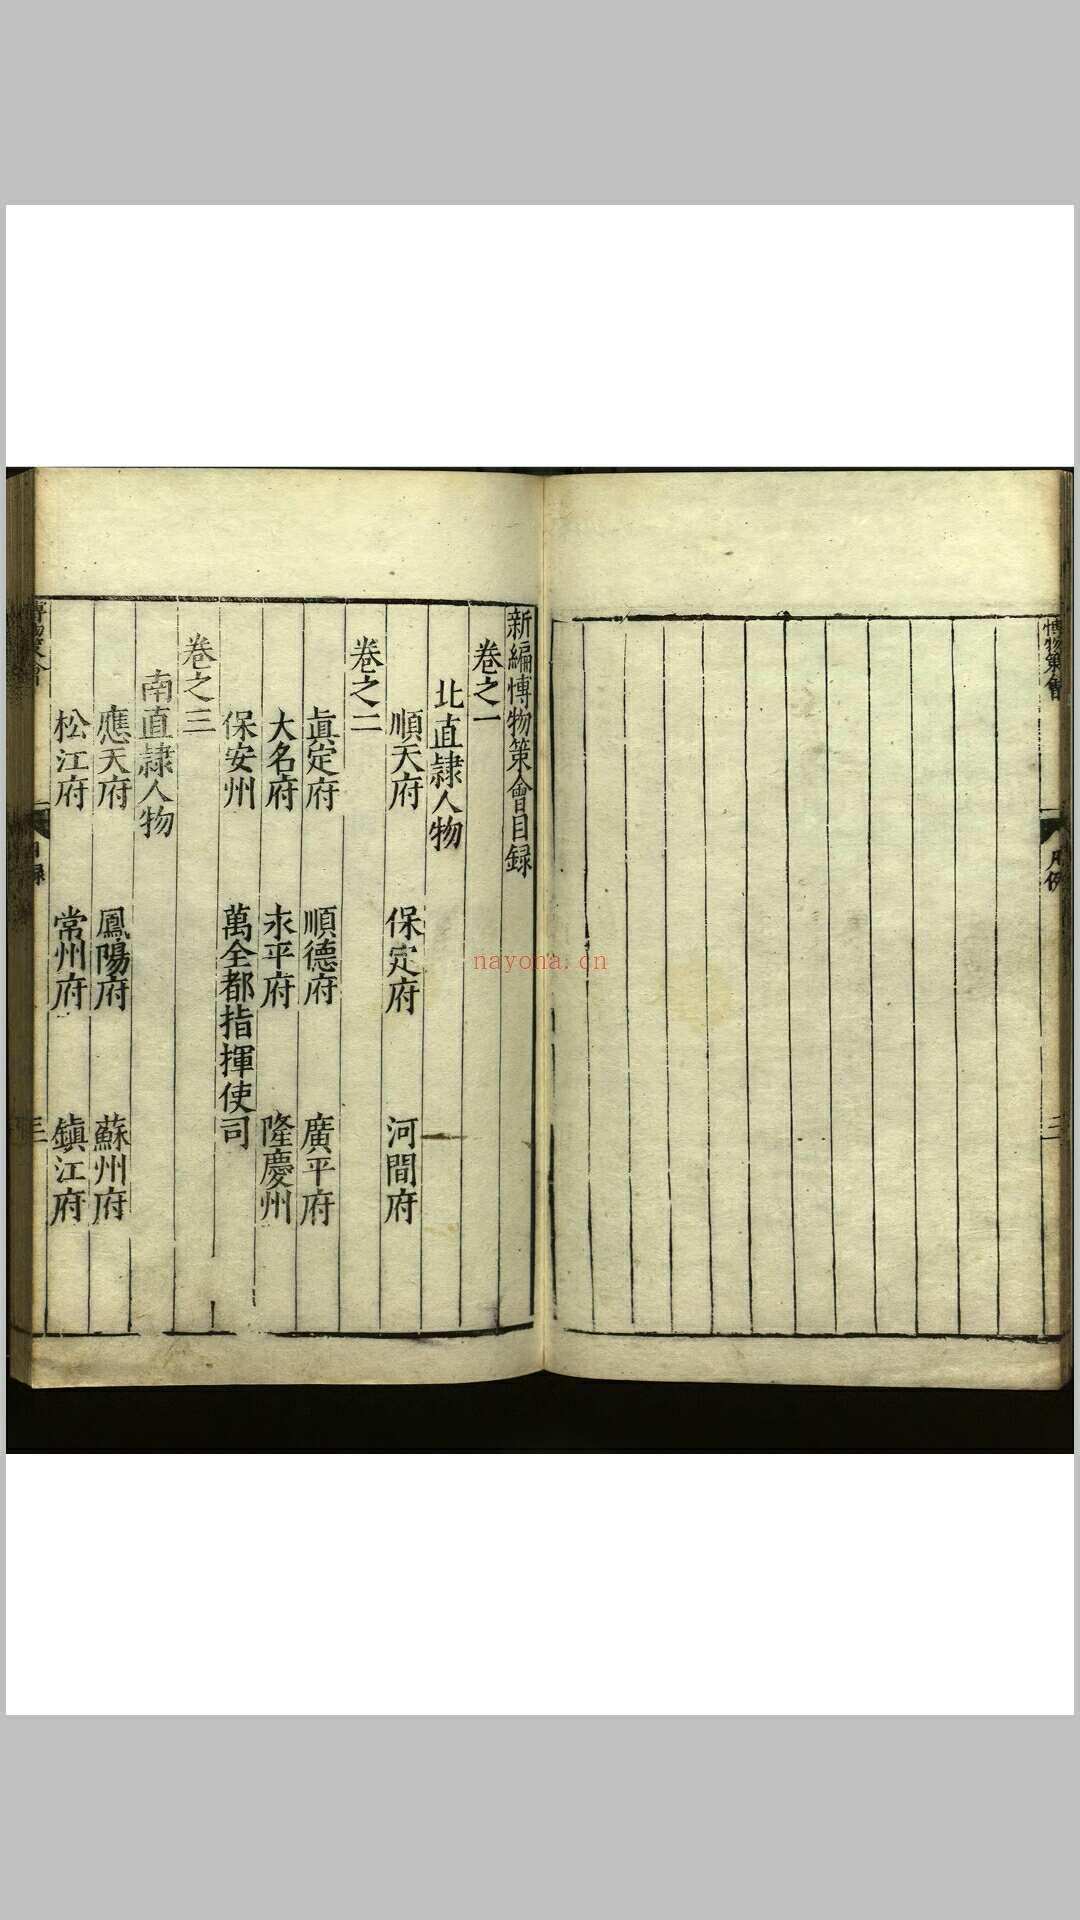 博物策會
凡例
三
新編博物策會目録
卷之一
北直隸人物
順天府 保定府 河間府
卷之二
眞定府 順德府 廣平府
大名府 永平府 隆慶州
保安州 萬全都指揮使司
卷之三
南直隸人物
應天府 鳳陽府 蘇州府
松江府 常州府 鎮江府
博物策會
目録
nayona.cn